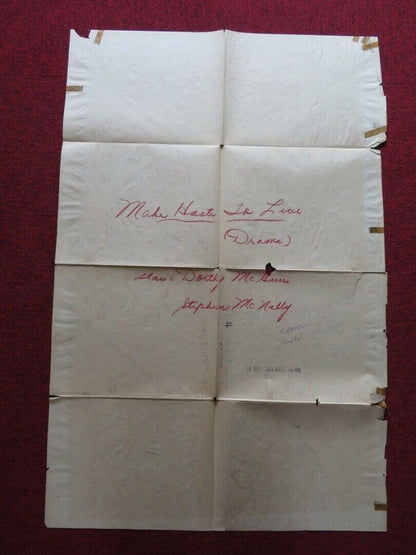 Make Haste To Live
(Drama)
stars - Dorthy McGuire
Stephen McNally.